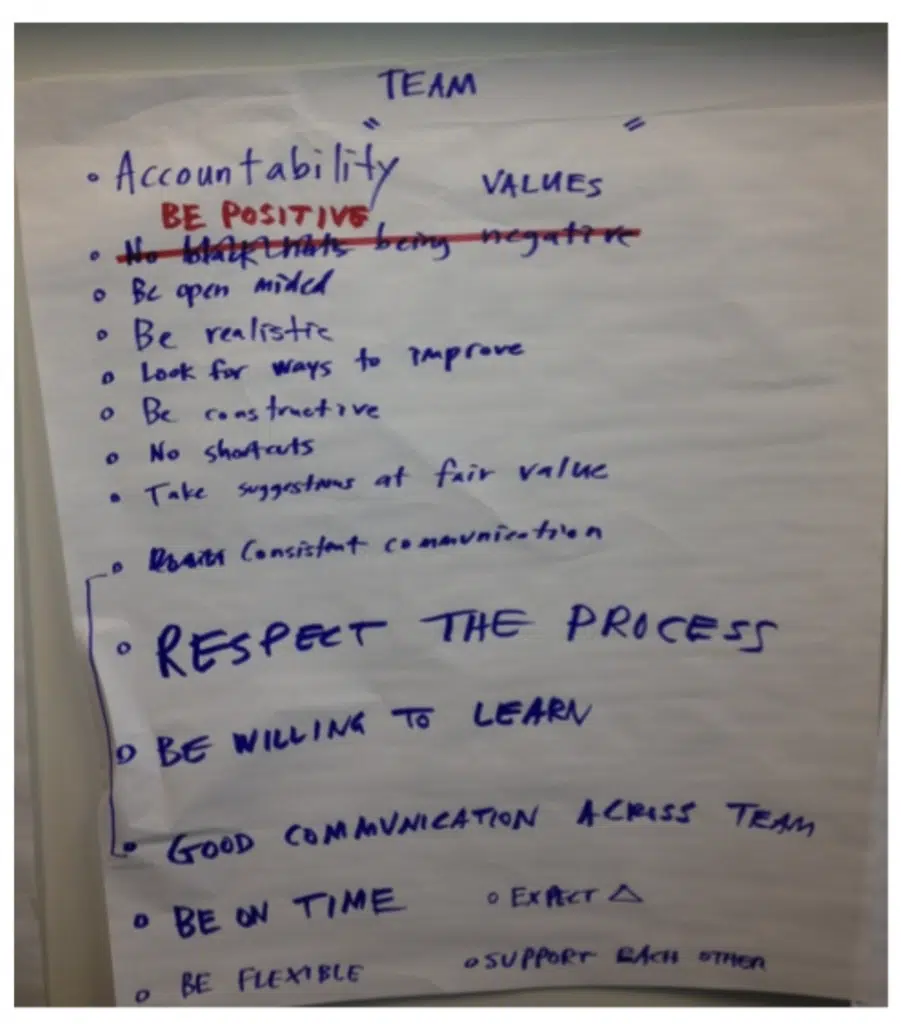 TEAM
" "
• Accountability
VALUES
BE POSITIVE
• No being negative
• Be open mided
• Be realistic
• Look for ways to improve
• Be constructive
• No shortcuts
• Take suggestions at fair value
• Consistent communication
• RESPECT THE PROCESS
• BE WILLING TO LEARN
• GOOD COMMUNICATION ACROSS TEAM
• BE ON TIME
• EXPECT △
• BE FLEXIBLE
• SUPPORT EACH OTHER